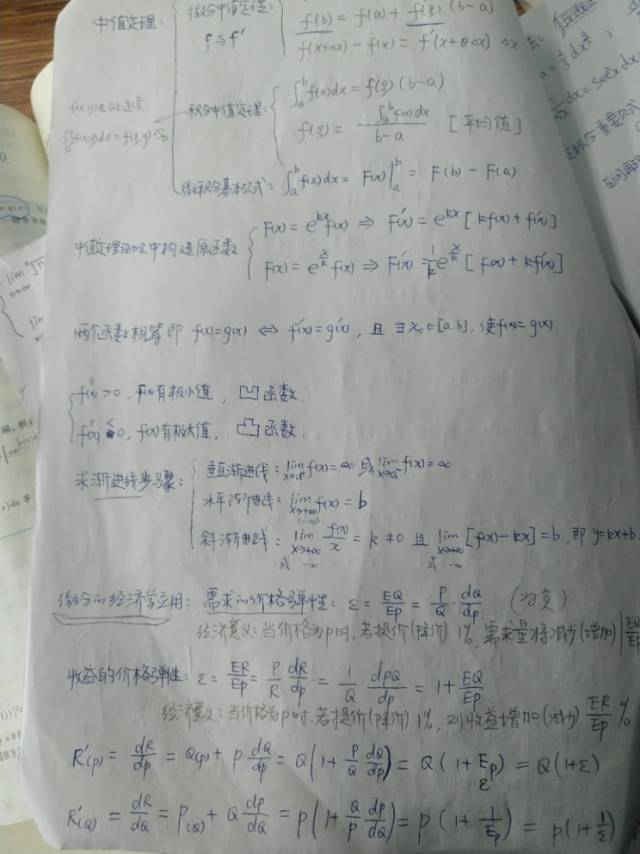 中值定理:
微分中值定理:
f与f′
f(b) = f(a) + f′(ξ)(b-a)
f(x+Δx) - f(x) = f′(x+θΔx)Δx
f(x,y)在D上连续
积分中值定理:
∫_a^b f(x)dx = f(ξ)(b-a)
f(ξ) = ∫_a^b f(x)dx / (b-a) [平均值]
微积分基本公式: ∫_a^b f(x)dx = F(x)|_a^b = F(b) - F(a)
中值定理证明中构造原函数
F(x) = e^{kx}f(x) ⇒ F′(x) = e^{kx}[kf(x)+f′(x)]
F(x) = e^{x/k}f(x) ⇒ F′(x) = 1/k e^{x/k}[f(x)+kf′(x)]
两个函数相等即 f(x)=g(x) ⇔ f′(x)=g′(x), 且 ∃x₀∈[a,b], 使f(x)=g(x).
f″(x)>0, f(x)有极小值, 凹函数.
f″(x)<0, f(x)有极大值, 凸函数.
求渐进线步骤:
垂直渐进线: lim f(x)=∞ 或 lim f(x)=∞
水平渐近线: lim_{x→+∞ (-∞)} f(x)=b
斜渐近线: lim_{x→+∞ 或-∞} f(x)/x = k ≠0 且 lim_{x→+∞ 或-∞} [f(x)-kx]=b, 即 y=kx+b.
微分的经济学应用: 需求的价格弹性: ε = EQ/Ep = P/Q · dQ/dp. (为负)
经济意义: 当价格为p时, 若提价(降价)1%, 需求量将减少(增加)
收益的价格弹性: ε = ER/Ep = P/R dR/dp = 1/Q dpQ/dp = 1 + EQ/Ep
经济意义: 当价格为p时, 若提价(降价)1%, 则收益增加(减少) ER/Ep %
R′(p) = dR/dp = Q(p) + p dQ/dp = Q(1 + P/Q dQ/dp) = Q(1+Ep) = Q(1+ε)
ε
R′(Q) = dR/dQ = P(Q) + Q dp/dQ = p(1 + Q/P dp/dQ) = p(1 + 1/Ep) = p(1+1/ε)